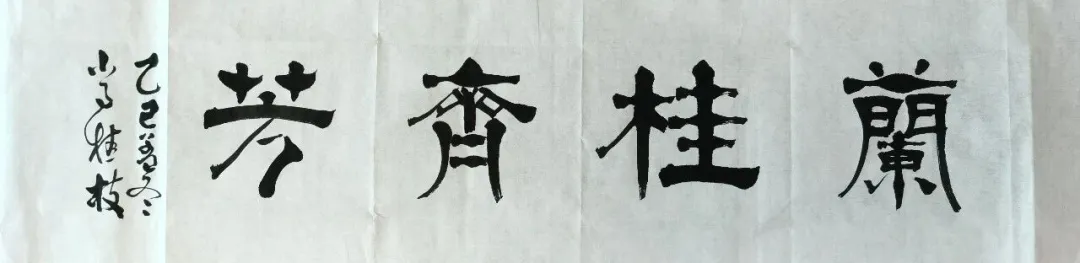 蘭桂齊芳
乙巳冬
桂枝